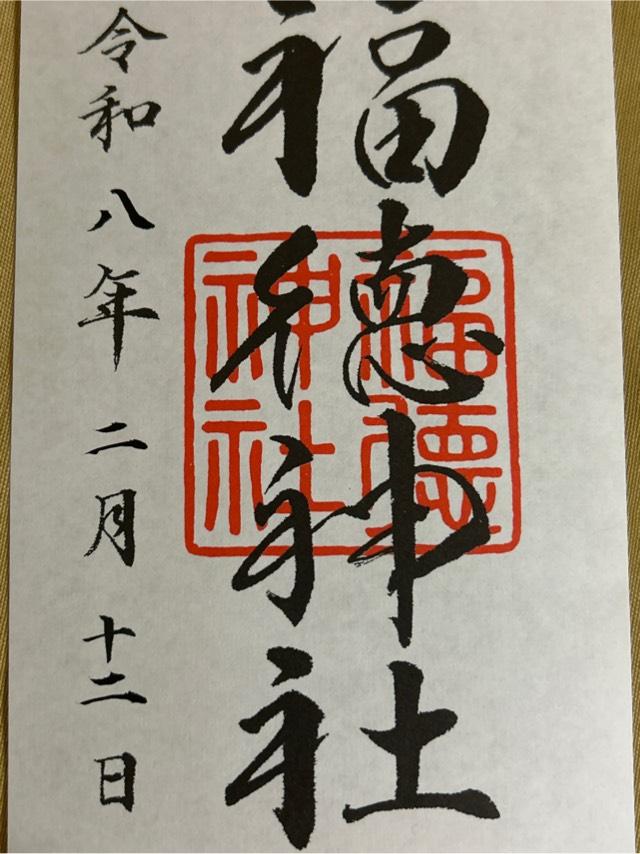 福徳神社
福徳
神社
令和八年二月十二日